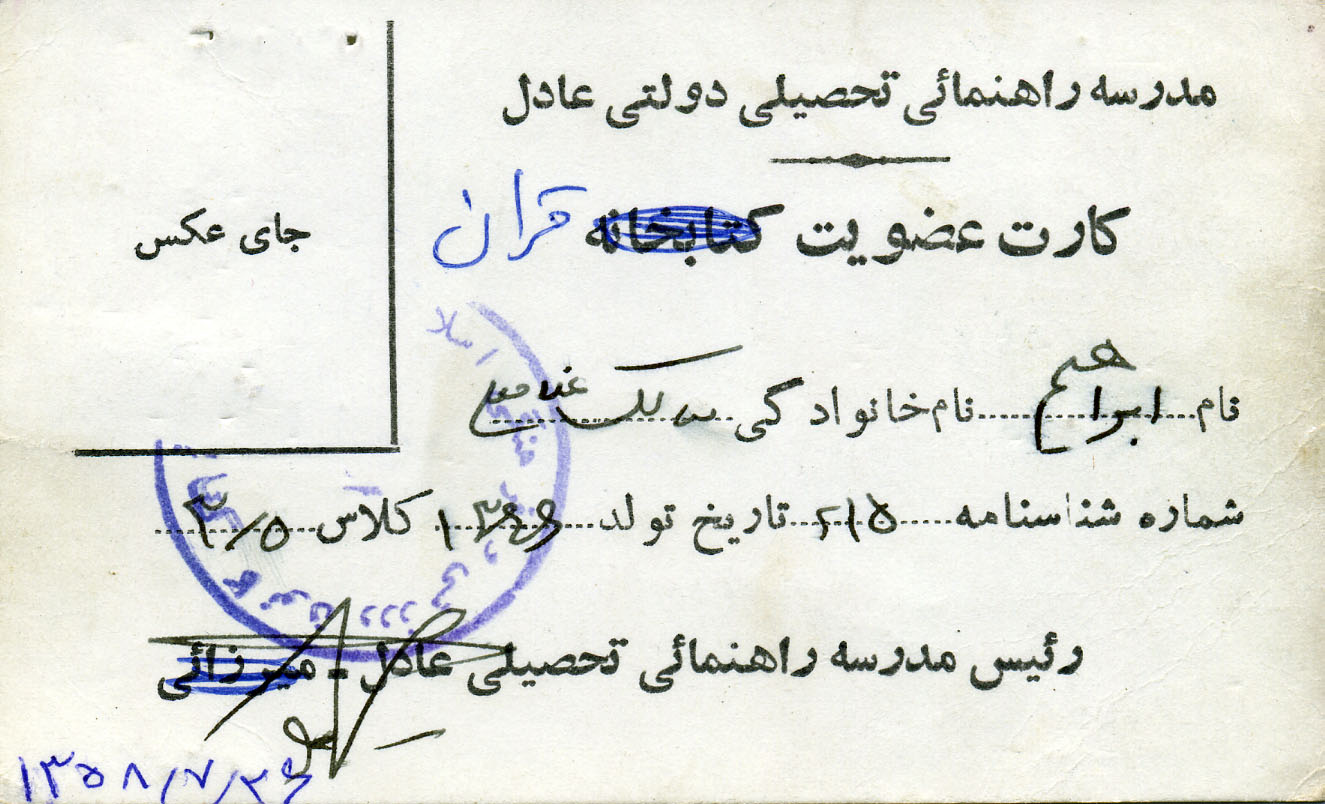 مدرسه راهنمائی تحصیلی دولتی عادل
کارت عضویت کتابخانه قران
جای عکس
نام ابراهیم نام خانوادگی
شماره شناسنامه ۶۱۵ تاریخ تولد ۱۳۴۴ کلاس ۳/۵
رئیس مدرسه راهنمائی تحصیلی عادل - میرزائی
۱۳۵۸/۷/۲۶